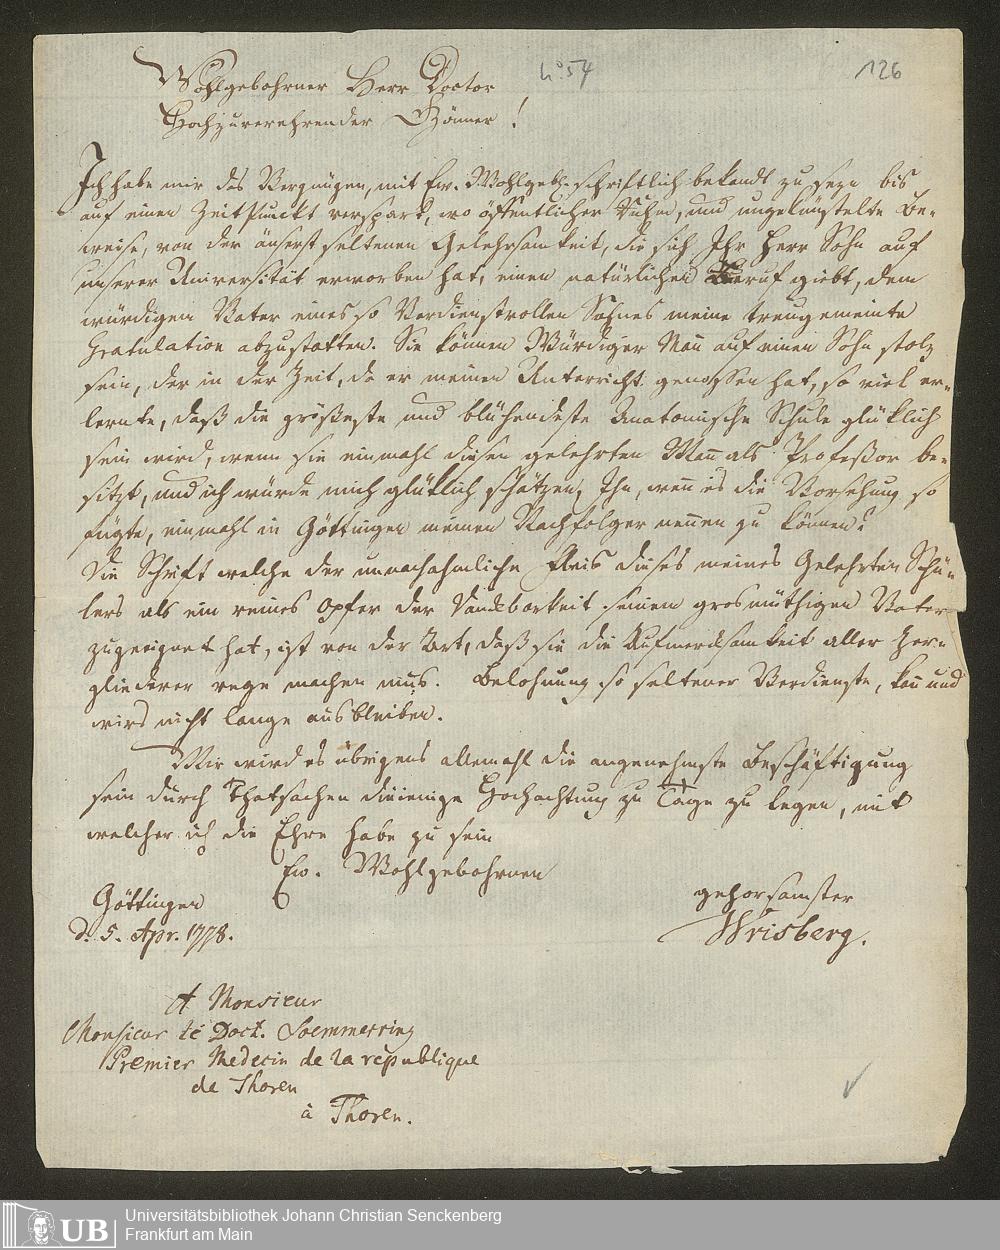 Wohlgebohrner Herr Doctor
N° 54
126
Hochzuverehrender Gönner!
Ich habe mir das Vergnügen, mit Ew. Wohlgeb. schriftlich bekandt zu seyn bis
auf einen Zeitpunckt verspart, wo öffentlicher Ruhm, und ungekünstelte Be-
weise, von der äuserst seltenen Gelehrsamkeit, die sich Ihr Herr Sohn auf
unserer Universität erworben hat, einen natürlichen Beruf giebt, dem
würdigen Vater eines so Verdienstvollen Sohnes meine treugemeinte
Gratulation abzustatten. Sie können Würdiger Mañ auf einen Sohn stolz
sein, der in der Zeit, da er meinen Unterricht genossen hat, so viel er-
lernte, daß die größeste und blühendeste Anatomische Schule glüklich
sein wird, wenn sie einmahl diesen gelehrten Mañ als Profeßor be-
sitzt, und ich würde mich glüklich schätzen, Ihn, weñ es die Vorsehung so
fügte, einmahl in Göttingen meinen Nachfolger nennen zu können.
Die Schrift welche der unnachahmliche Fleis dieses meines Gelehrten Schü-
lers als ein reines Opfer der Dankbarkeit seinen grosmüthigen Vater
zugeeignet hat, ist von der Art, daß sie die Aufmerksamkeit aller Zer-
gliederer rege machen mus. Belohnung so seltener Verdienste, kañ und
wird nicht lange ausbleiben.
Mir wird es übrigens allemahl die angenehmste Beschäftigung
sein durch Thatsachen dieienige Hochachtung zu Tage zu legen, mit
welcher ich die Ehre habe zu sein
Ew. Wohlgebohrnen
Göttingen
d. 5. Apr. 1778.
gehorsamster
Wrisberg.
A Monsieur
Monsieur le Doct. Soemmerring
Premier Medecin de la republique
de Thoren
à Thoren.
UB
Universitätsbibliothek Johann Christian Senckenberg
Frankfurt am Main